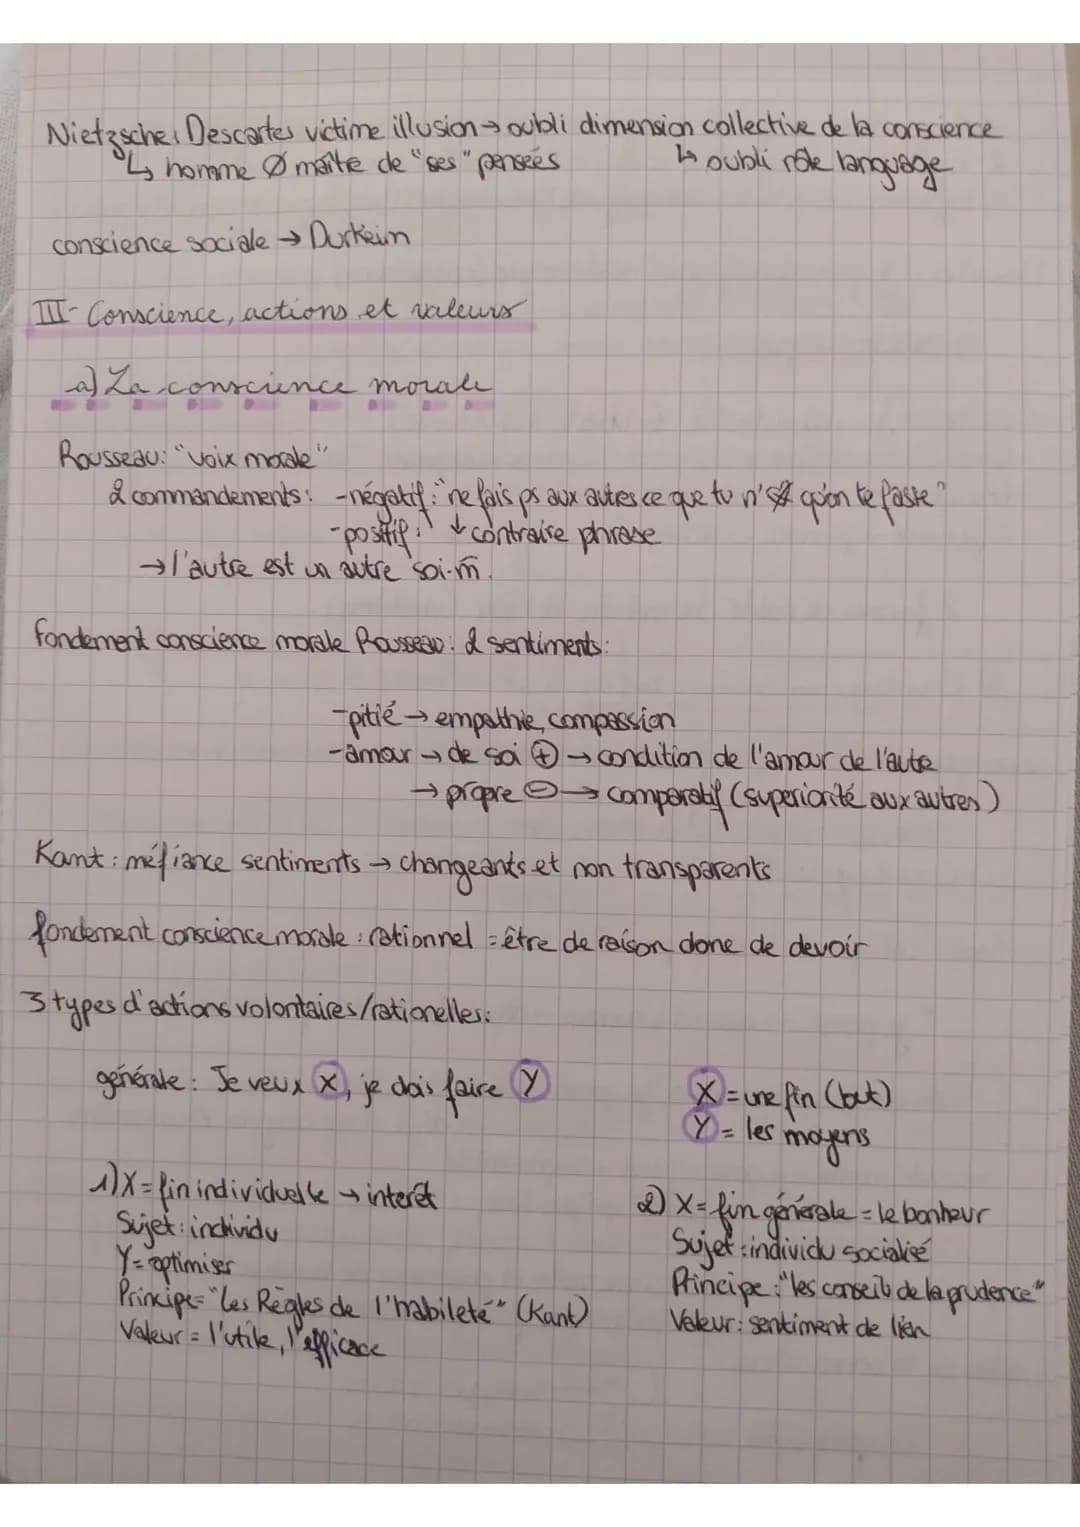 Nietzsche: Descartes victime illusion → oubli dimension collective de la conscience
↳ homme Ø maîte de "ses" pensées ↳ oubli rôle language
conscience sociale → Durkeim
III- Conscience, actions et valeurs
a) La conscience morale
Rousseau: "voix morale"
2 commandements: -négatif: "ne fais ps aux autres ce que tu n' qu'on te fasse"
-positif: ↓ contraire phrase
→ l'autre est un autre soi-m̄.
fondement conscience morale Rousseau: 2 sentiments:
-pitié → empathie, compassion
-amour → de soi ⊕ → condition de l'amour de l'autre
→ propre ⊖ → comparatif (superiorité aux autres)
Kant: méfiance sentiments → changeants et non transparents
fondement conscience morale: rationnel = être de raison donc de devoir
3 types d'actions volontaires/rationelles:
générale: Je veux X, je dois faire Y
X = une fin (but)
Y = les moyens
1) X = fin individuelle → interêt
Sujet: individu
Y = optimiser
Principe = "Les Règles de l'habileté" (Kant)
Valeur = l'utile, l'efficace
2) X = fin générale = le bonheur
Sujet: individu socialisé
Principe: "les conseils de la prudence"
Valeur: sentiment de lien